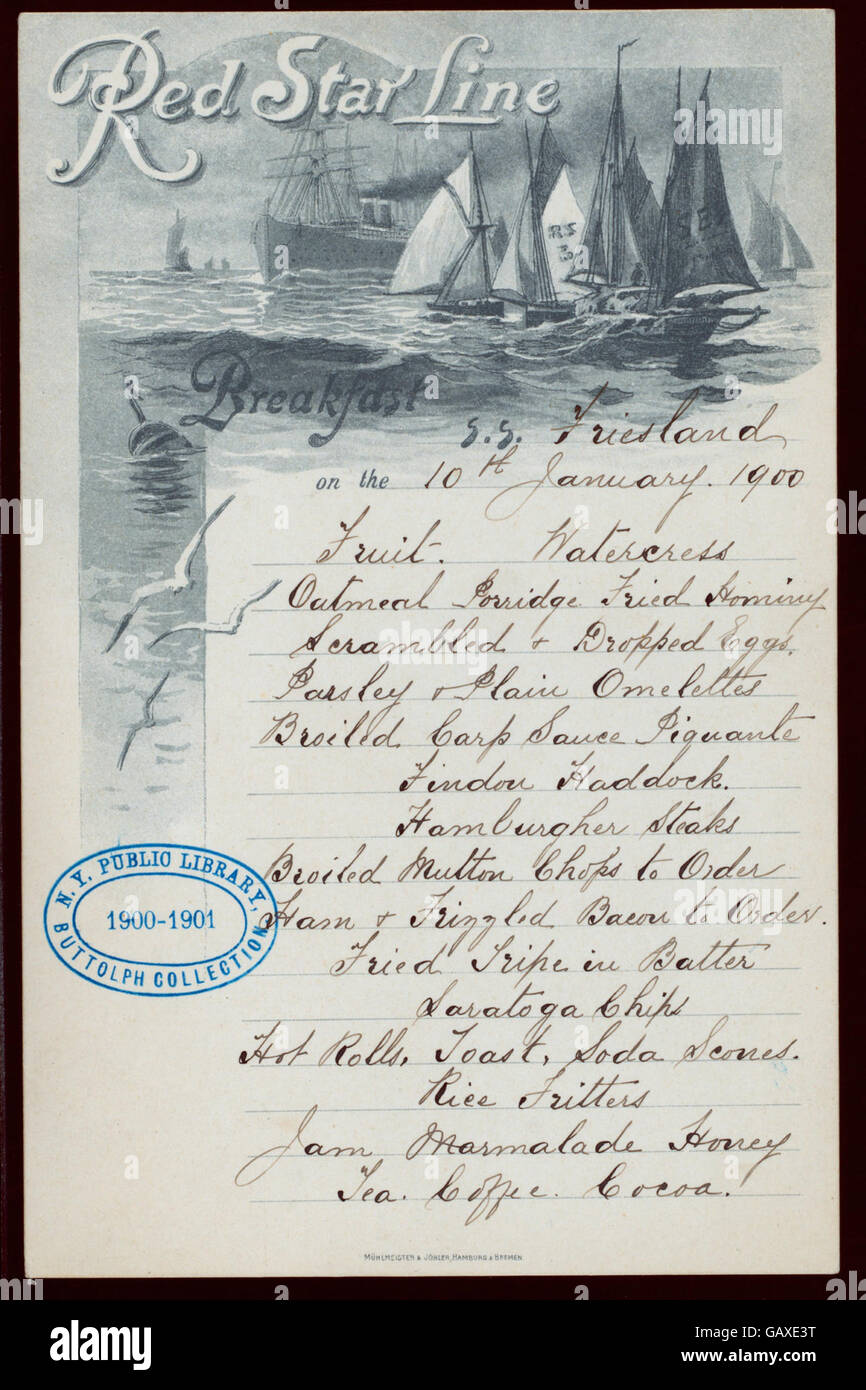 Red Star Line
RS
Breakfast
S.S. Friesland
on the 10th January. 1900
Fruit. Watercress
Oatmeal Porridge Fried Hominy
Scrambled & Dropped Eggs.
Parsley & Plain Omelettes
Broiled Carp Sauce Piquante
Findon Haddock.
Hamburgher Steaks
Broiled Mutton Chops to Order
Ham & Frizzled Bacon to Order.
Fried Tripe in Batter
Saratoga Chips
Hot Rolls, Toast, Soda Scones.
Rice Fritters
Jam Marmalade Honey
Tea. Coffee. Cocoa.
N.Y. PUBLIC LIBRARY,
1900-1901
BUTTOLPH COLLECTION
MÜHLMEISTER & JOHLER, HAMBURG & BREMEN
alamy
a
alamy
Image ID: GAXE3T
www.alamy.com